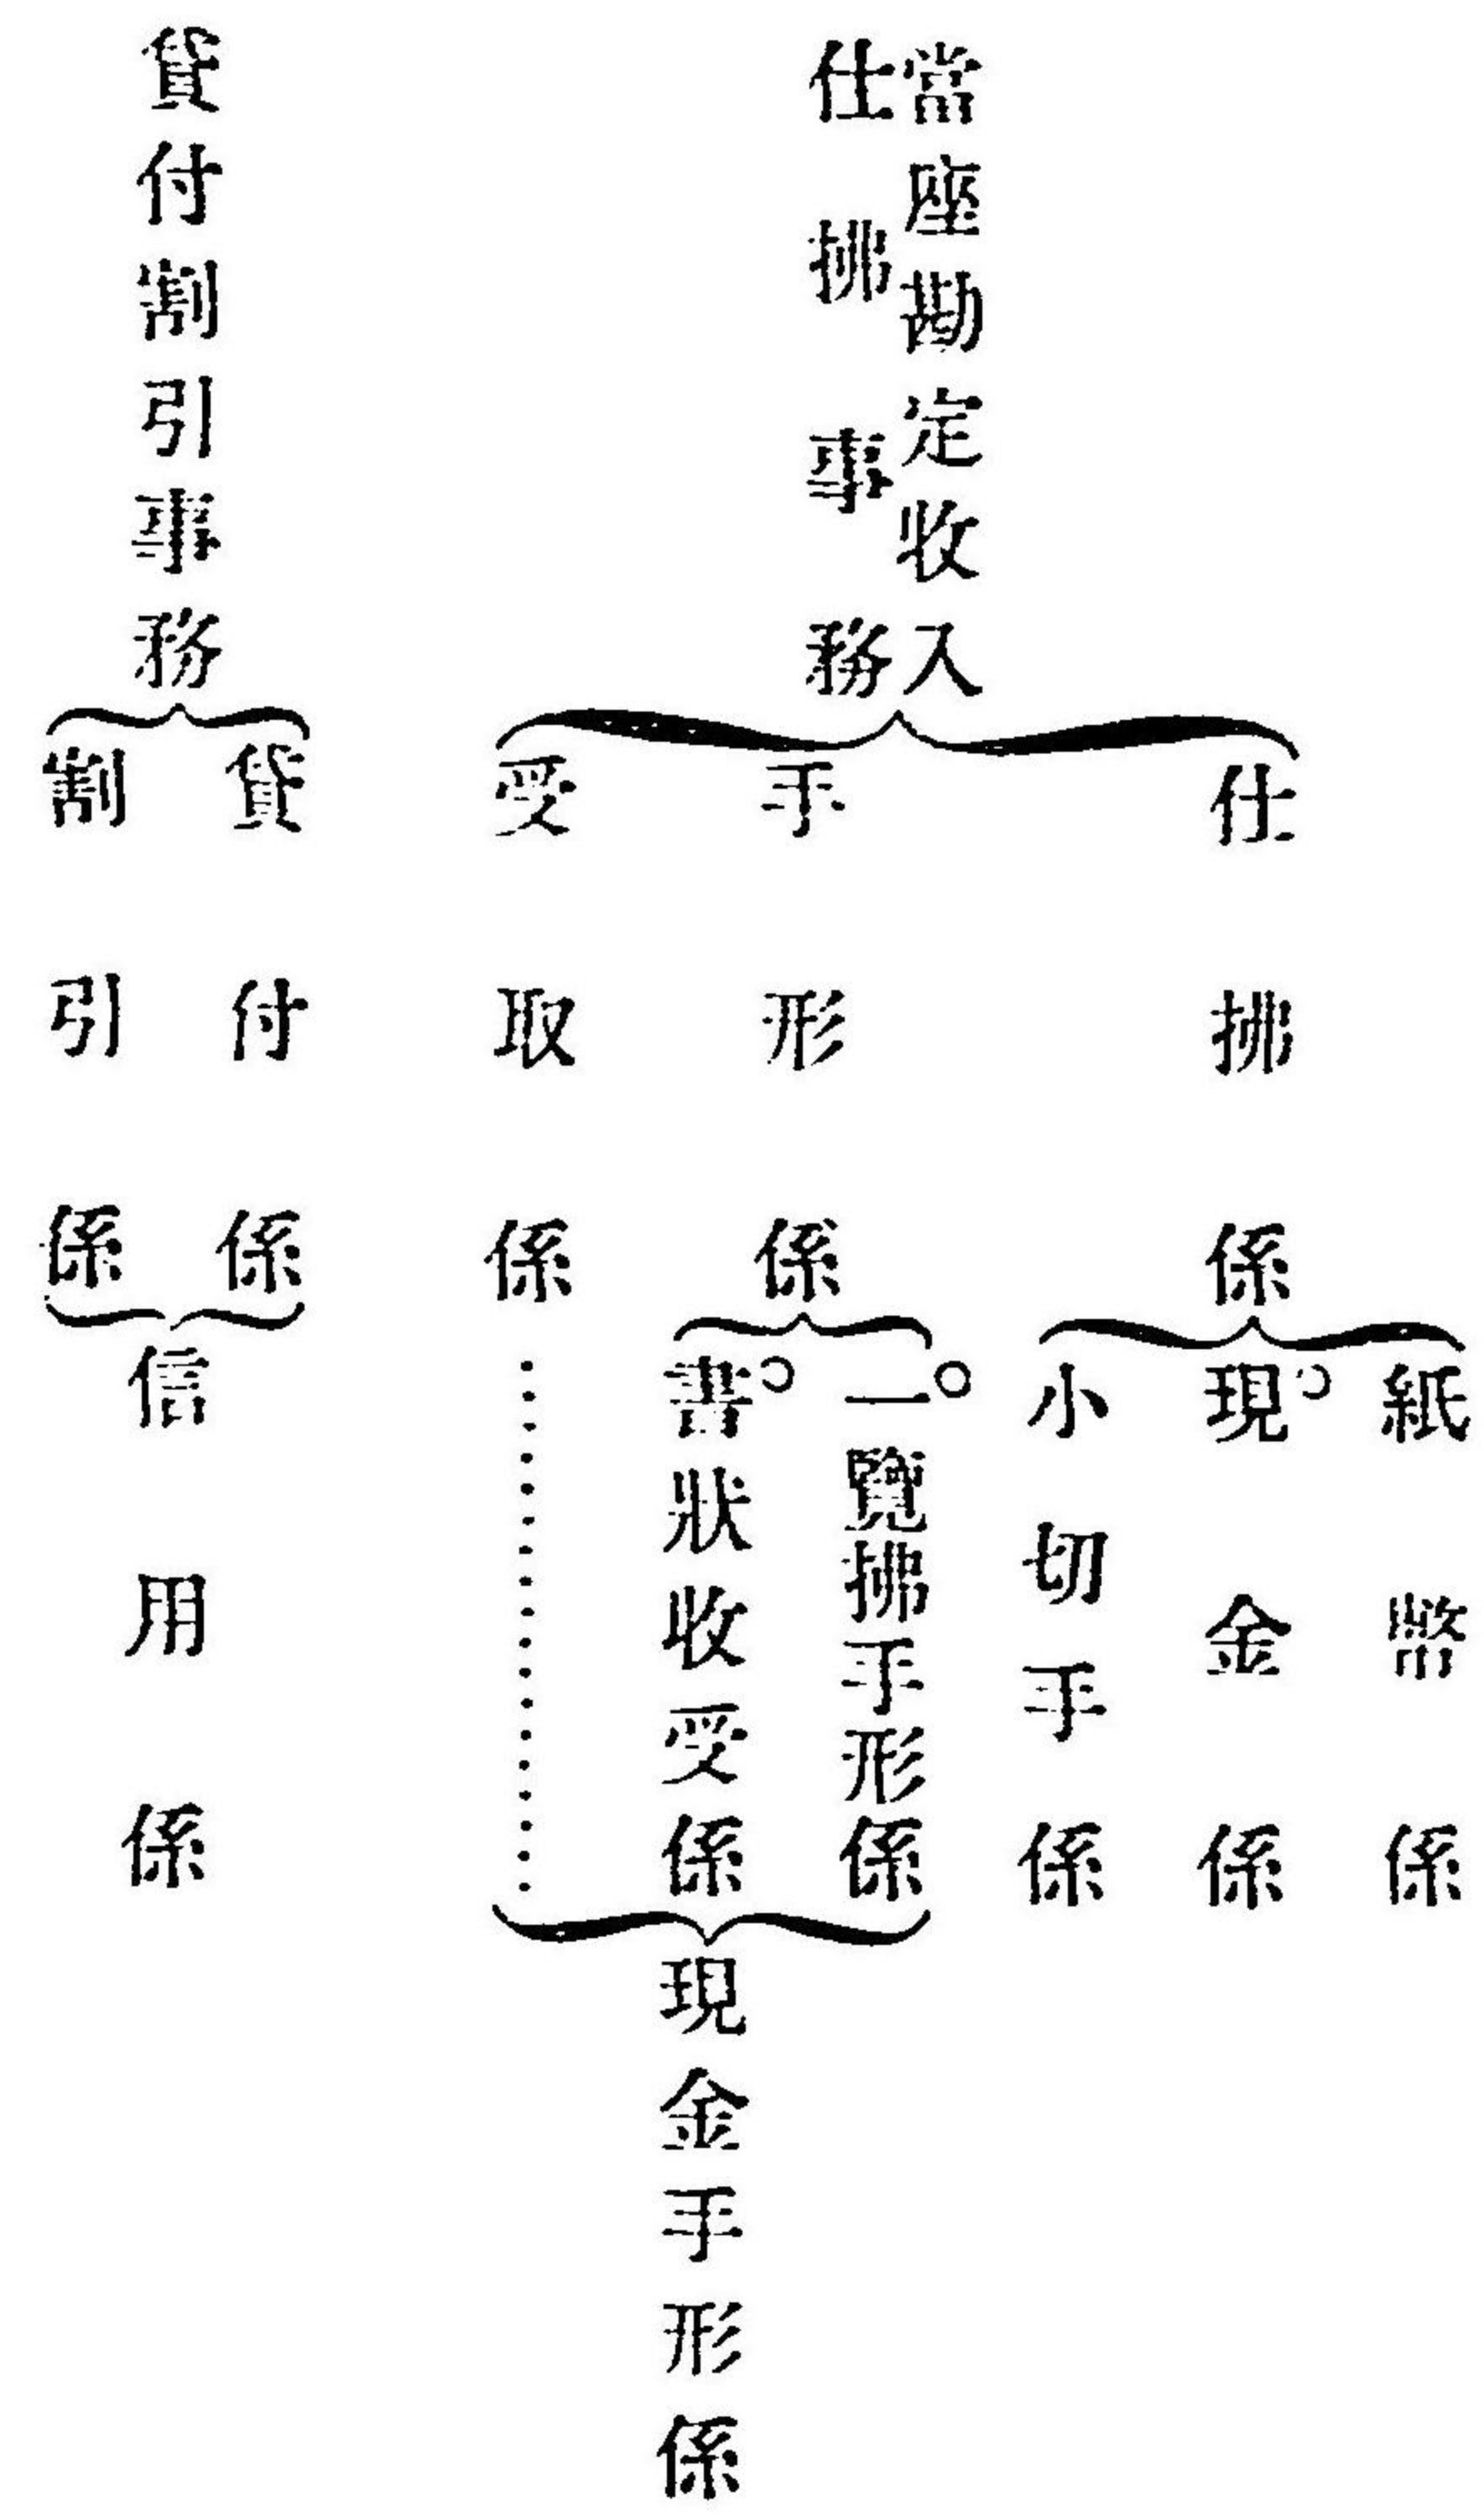 當座勘定收入
仕拂事務
仕拂係
紙幣係
現金係
小切手係
手形係
一覽拂手形係
書狀收受係
受取係
現金手形係
貸付割引事務
貸付係
割引係
信用係